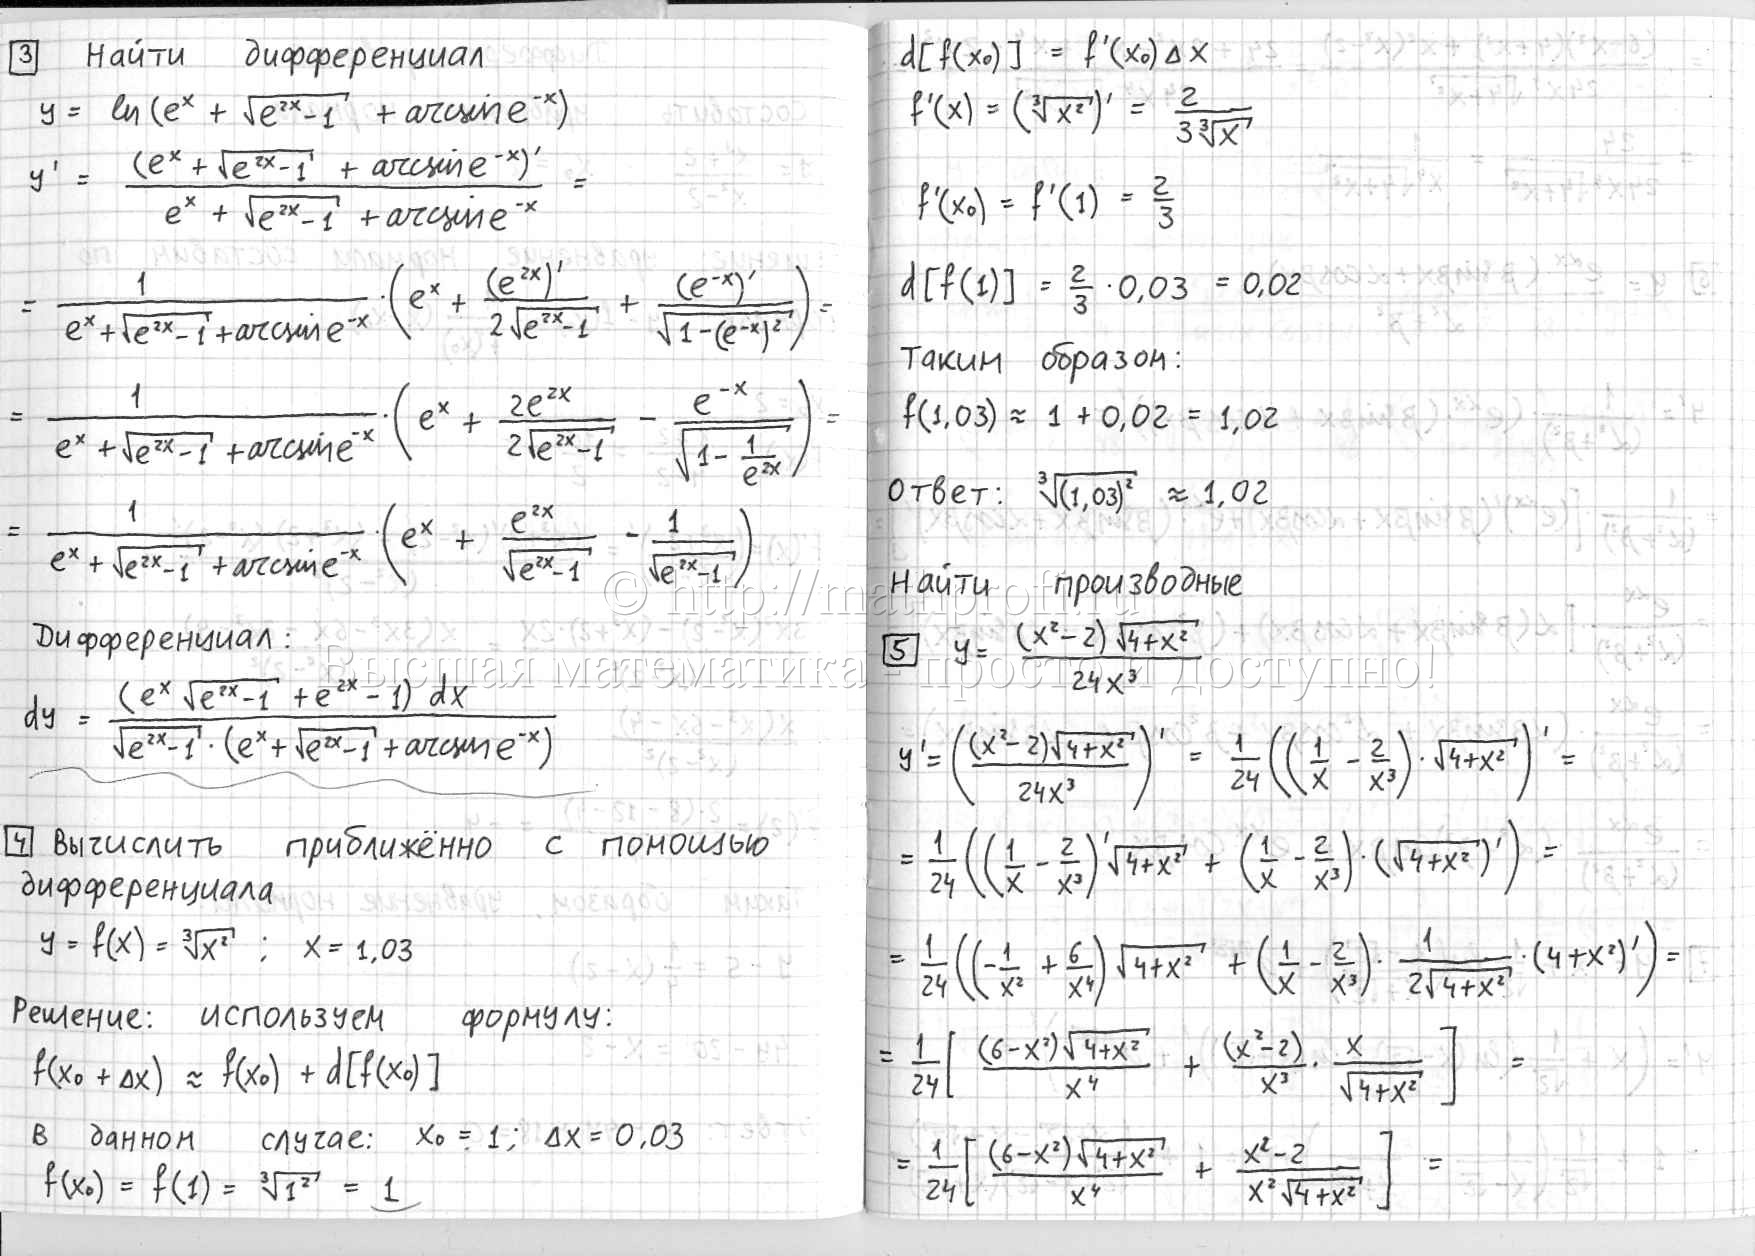 3 Найти дифференциал
y = ln(eˣ + √(e²ˣ-1) + arcsin e⁻ˣ)
y' = (eˣ + √(e²ˣ-1) + arcsin e⁻ˣ)' / (eˣ + √(e²ˣ-1) + arcsin e⁻ˣ) =
= 1/(eˣ + √(e²ˣ-1) + arcsin e⁻ˣ) · (eˣ + (e²ˣ)'/(2√(e²ˣ-1)) + (e⁻ˣ)'/√(1-(e⁻ˣ)²)) =
= 1/(eˣ + √(e²ˣ-1) + arcsin e⁻ˣ) · (eˣ + 2e²ˣ/(2√(e²ˣ-1)) - e⁻ˣ/√(1 - 1/e²ˣ)) =
= 1/(eˣ + √(e²ˣ-1) + arcsin e⁻ˣ) · (eˣ + e²ˣ/√(e²ˣ-1) - 1/√(e²ˣ-1))
Дифференциал:
dy = (eˣ √(e²ˣ-1) + e²ˣ - 1) dx / (√(e²ˣ-1) · (eˣ + √(e²ˣ-1) + arcsin e⁻ˣ))
4 Вычислить приближённо с помощью
дифференциала
y = f(x) = ∛(x²) ; x = 1,03
Решение: используем формулу:
f(x₀ + Δx) ≈ f(x₀) + d[f(x₀)]
В данном случае: x₀ = 1; Δx = 0,03
f(x₀) = f(1) = ∛(1²) = 1
d[f(x₀)] = f'(x₀) Δx
f'(x) = (∛(x²))' = 2/(3∛x)
f'(x₀) = f'(1) = 2/3
d[f(1)] = 2/3 · 0,03 = 0,02
Таким образом:
f(1,03) ≈ 1 + 0,02 = 1,02
Ответ: ∛((1,03)²) ≈ 1,02
Найти производные
5 y = (x²-2)√(4+x²) / 24x³
y' = ((x²-2)√(4+x²) / 24x³)' = 1/24 ((1/x - 2/x³) · √(4+x²))' =
= 1/24 ((1/x - 2/x³)' √(4+x²) + (1/x - 2/x³) · (√(4+x²))') =
= 1/24 ((-1/x² + 6/x⁴) √(4+x²) + (1/x - 2/x³) · 1/(2√(4+x²)) · (4+x²)') =
= 1/24 [(6-x²)√(4+x²) / x⁴ + (x²-2)/x³ · x/√(4+x²)] =
= 1/24 [(6-x²)√(4+x²) / x⁴ + (x²-2)/(x²√(4+x²))] =
© http://mathprofi.ru
Высшая математика - просто и доступно!